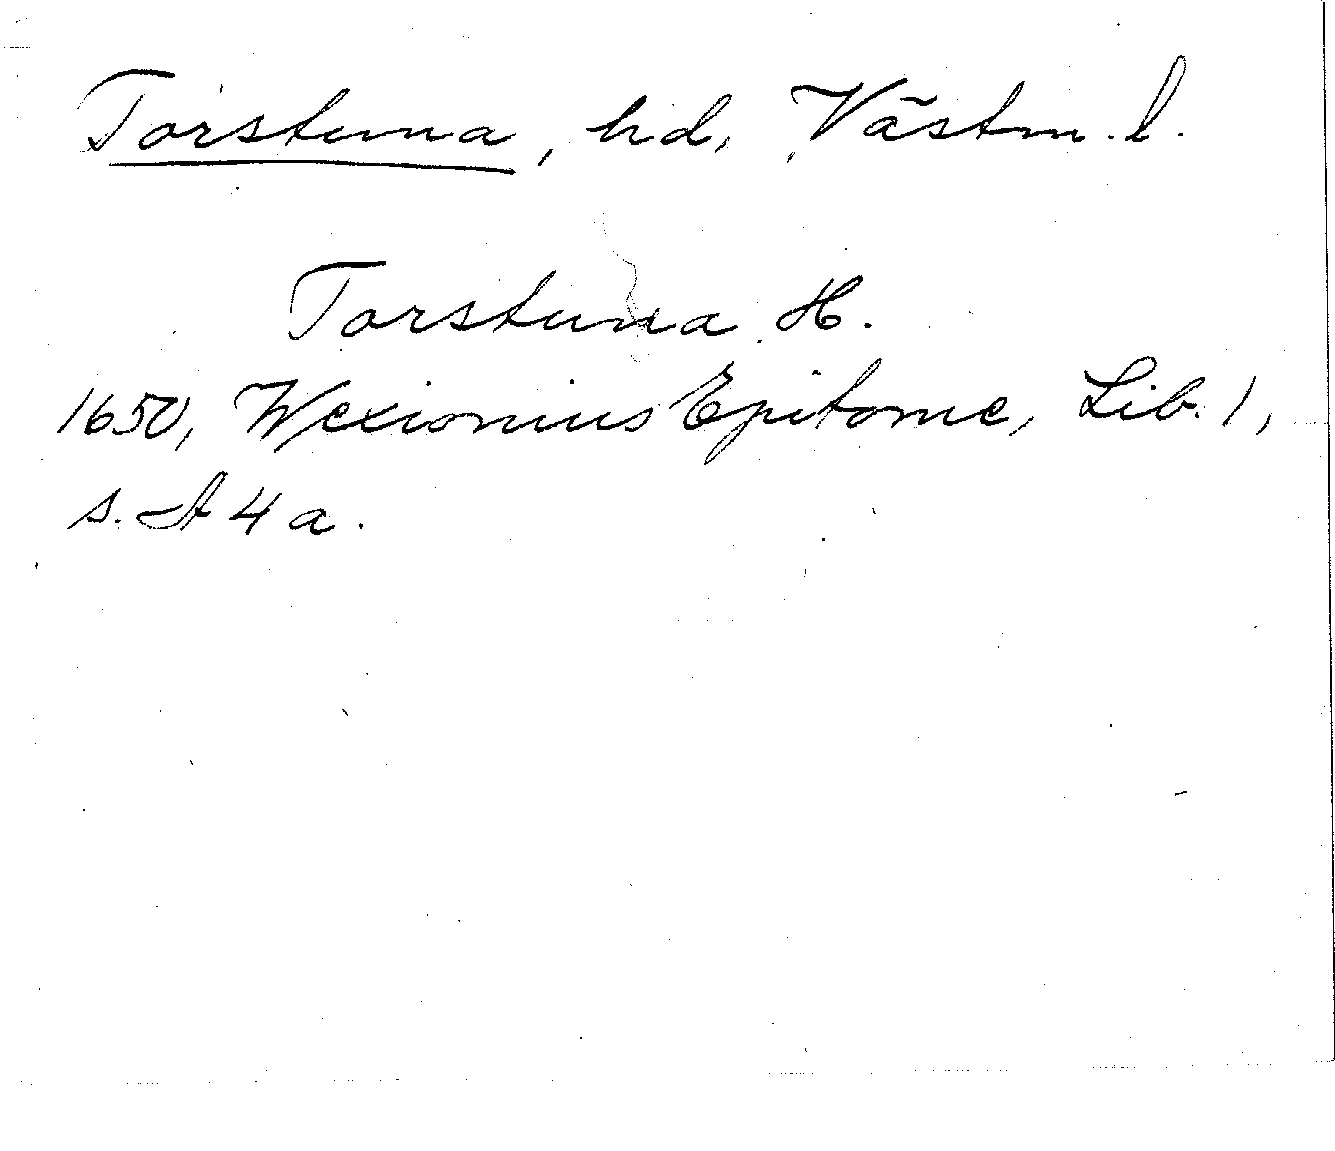 Torstuna, hd, Västm. l.
Torstuna H.
1650, Wexionius Epitome, Lib. 1,
s. A 4 a.